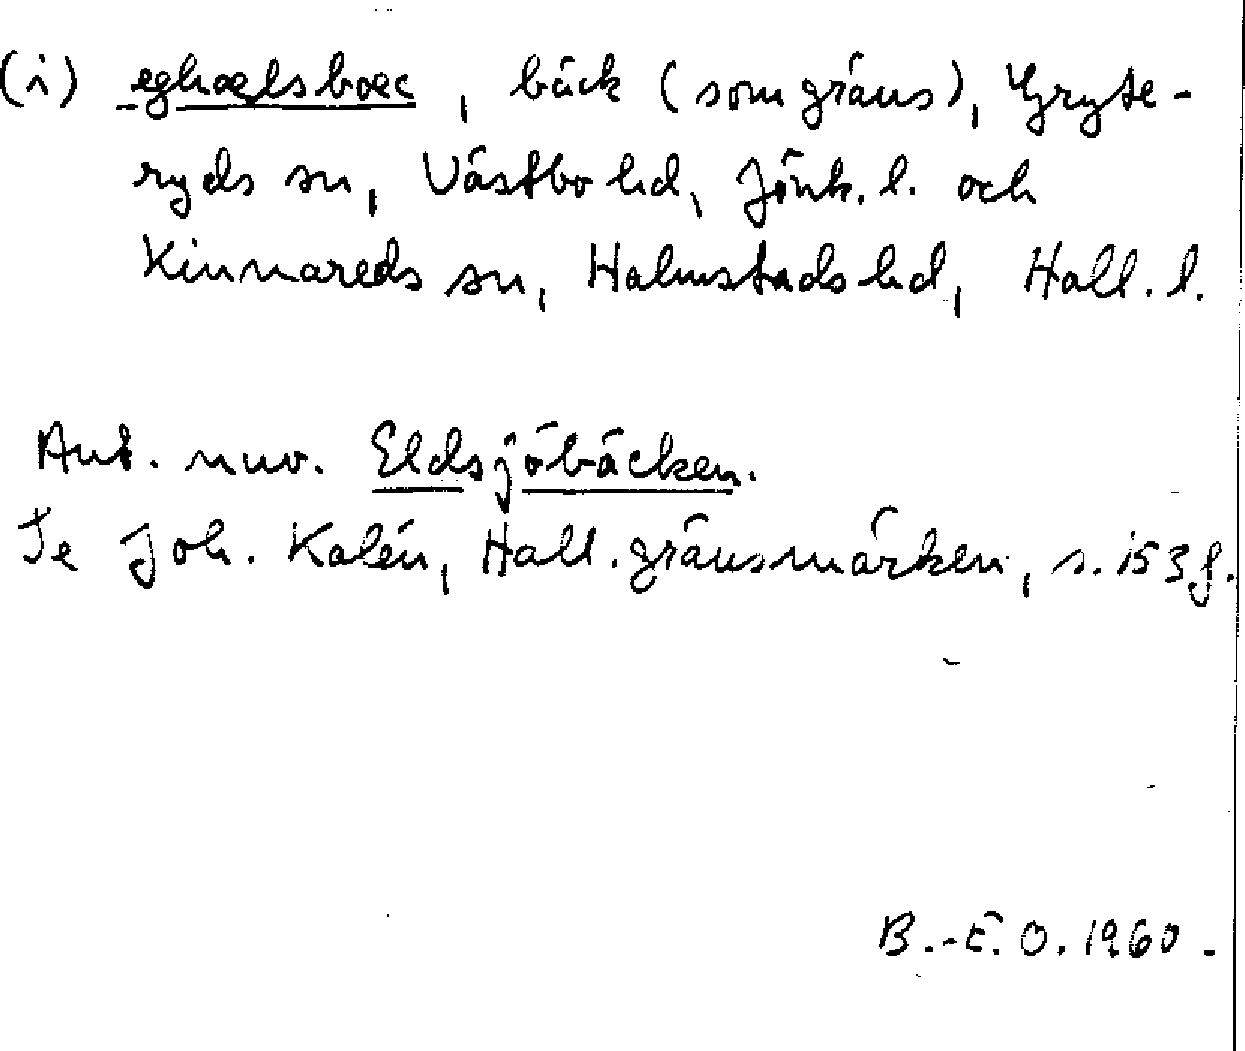 (i) eghælsbæc, bäck (som gräns), Gryte-
ryds sn, Västbo hd, Jönk. l. och
Kinnareds sn, Halmstads hd, Hall. l.
Ant. nuv. Eldsjöbäcken.
Se Joh. Kalén, Hall. gränsmärken, s. 153 f.
B.-E. O. 1960.